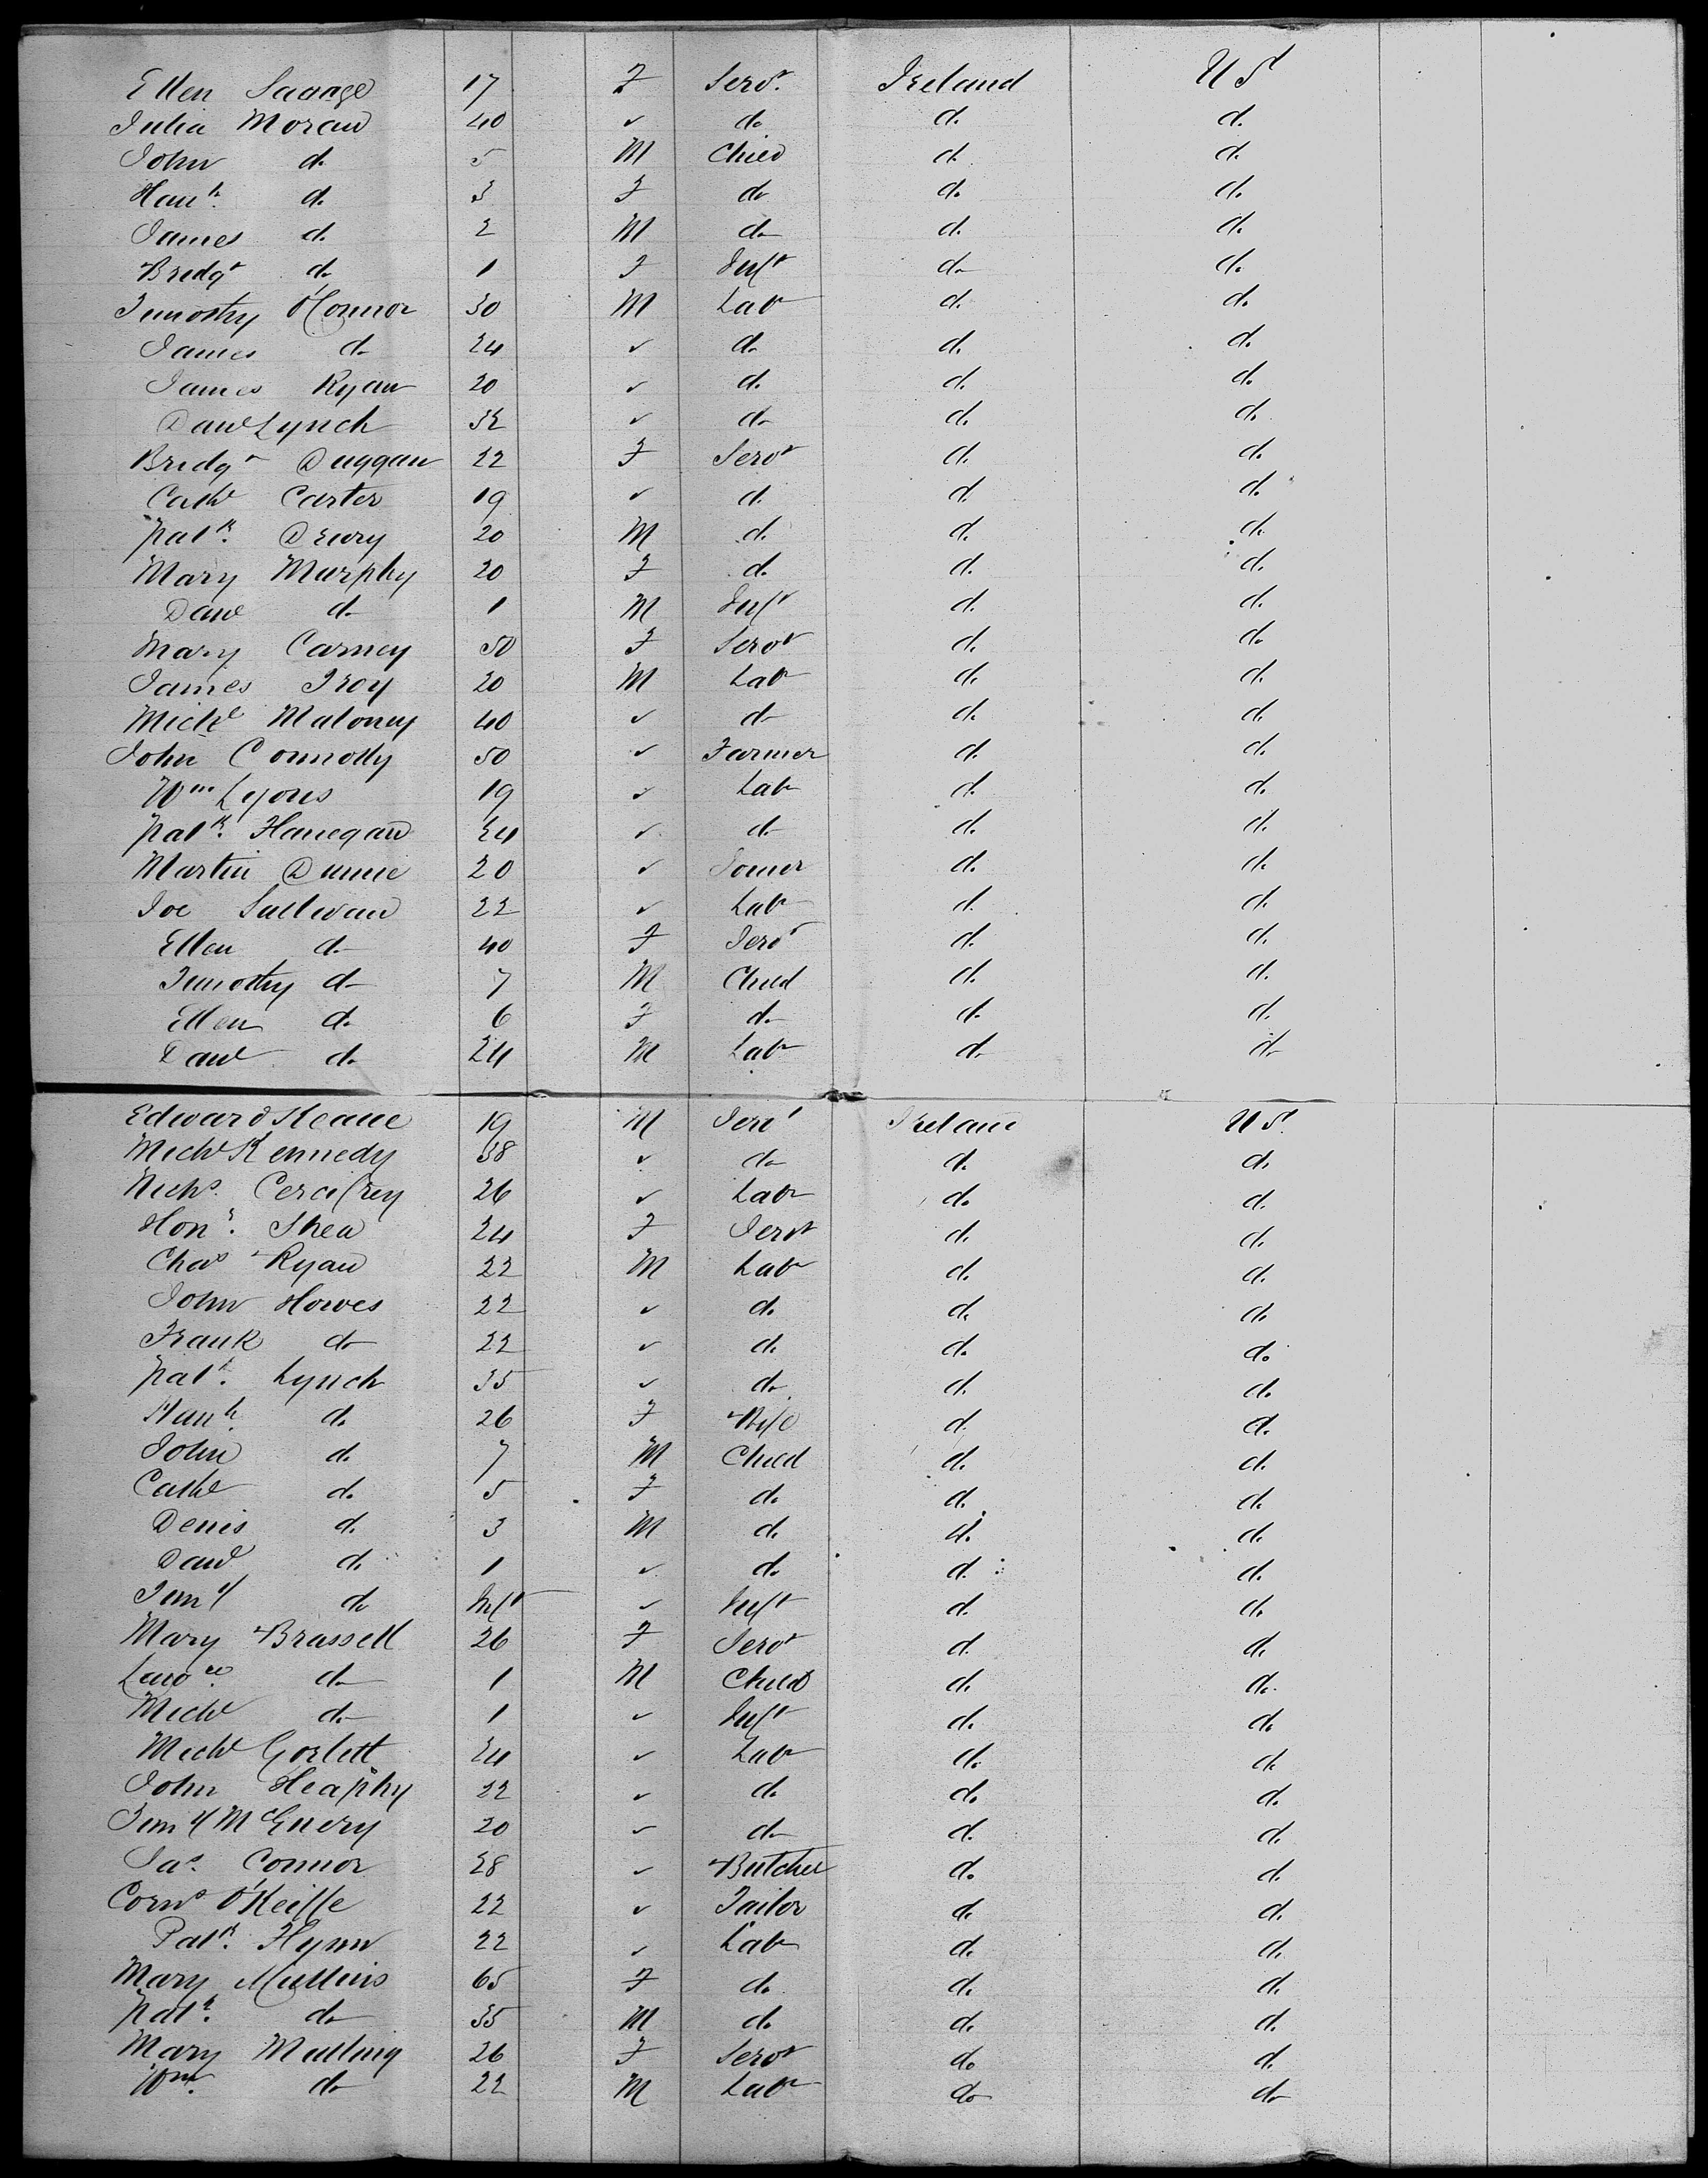 Ellen Savage 17 F Servt. Ireland U St
Julia Moran 40 " do do do
John do 5 M Child do do
Hanh. do 3 F do do do
James do 2 M do do do
Bridgt do 1 F Inft do do
Timothy O'Connor 30 M Labr do do
James do 24 " do do do
James Ryan 20 " do do do
Danl Lynch 32 " do do do
Bridgt Duggan 22 F Servt do do
Cathe Carter 19 " do do do
Patk. Drury 20 M do do do
Mary Murphy 20 F do do do
Danl do 1 M Inft do do
Mary Carney 50 F Servt do do
James Troy 20 M Labr do do
Michl Maloney 40 " do do do
John Connolly 50 " Farmer do do
Wm Lyons 19 " Labr do do
Patk. Hanegan 24 " do do do
Martin Dunne 20 " do do
Joe Sullivan 22 " Labr do do
Ellen do 40 F Servt do do
Timothy do 7 M Child do do
Ellen do 6 F do do do
Danl do 24 M Labr do do
Edward Keane 19 M Servt Ireland U St.
Michl Kennedy 38 " do do do
Nichs. 26 " Labr do do
Honr. Shea 24 F Servt do do
Chas Ryan 22 M Labr do do
John Howes 22 " do do do
Frank do 22 " do do do
Patk. Lynch 35 " do do do
Hanh. do 26 F Wife do do
John do 7 M Child do do
Cathe do 5 F do do do
Denis do 3 M do do do
Danl do 1 " do do do
Timy do Inft " Inft do do
Mary Brassell 26 F Servt do do
Lawce. do 1 M Child do do
Michl do 1 " Inft do do
Michl Gorlett 24 " Labr do do
John Heaphy 22 " do do do
Timy McEnery 20 " do do do
Jas. Connor 28 " Butcher do do
Corns O'Keiffe 22 " Tailor do do
Patk. Flynn 22 " Labr do do
Mary Mullins 65 F do do do
Patk. do 35 M do do do
Mary Mulling 26 F Servt do do
Wm. do 22 M Labr do do